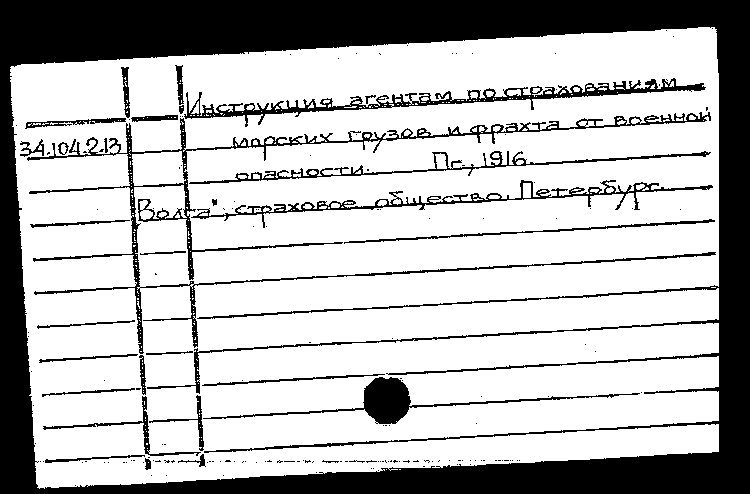 Инструкция агентам по страхованиям
34.104.2.13 морских грузов и фрахта от военной
опасности. Пг., 1916.
Волга", страховое общество. Петербург.